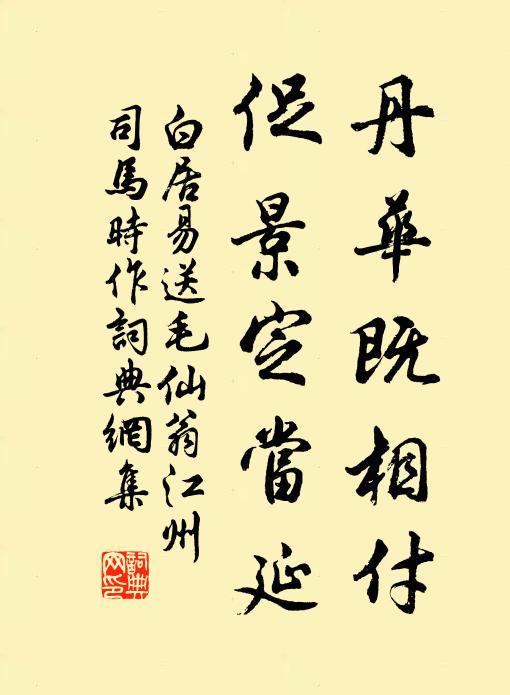 丹華既相付
促景定當延
白居易送毛仙翁江州
司馬時作詞典網集
詞典網印